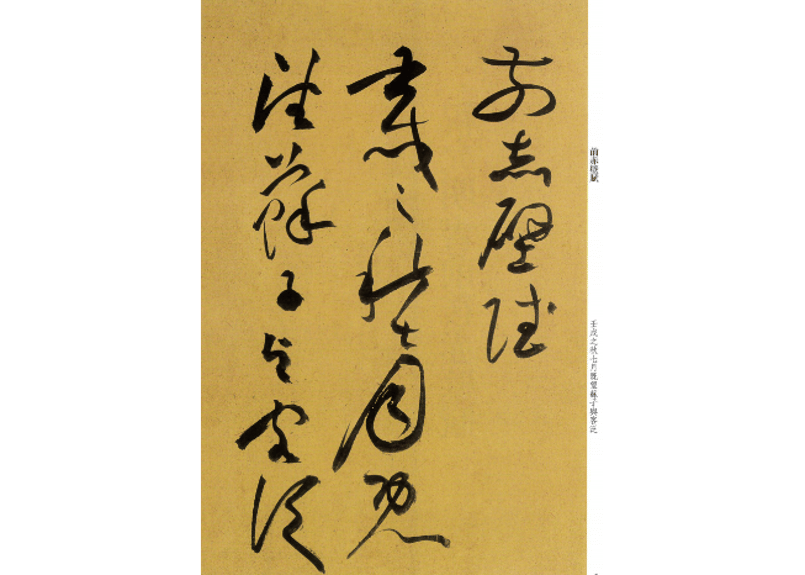 前赤壁賦
壬戌之秋七月既
望蘇子與客泛
前赤壁賦
壬戌之秋七月既望蘇子與客泛